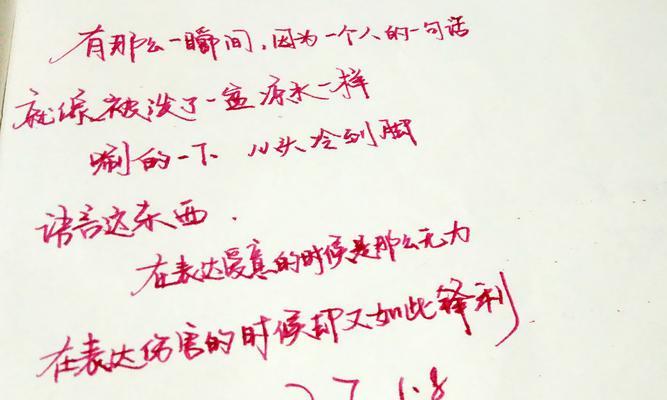 有那么一瞬间,因为一个人的一句话
就像被泼了一盆凉水一样
唰的一下 从头冷到脚
语言这东西.
在表达爱意的时候是那么无力
在表达伤害的时候却又如此锋利